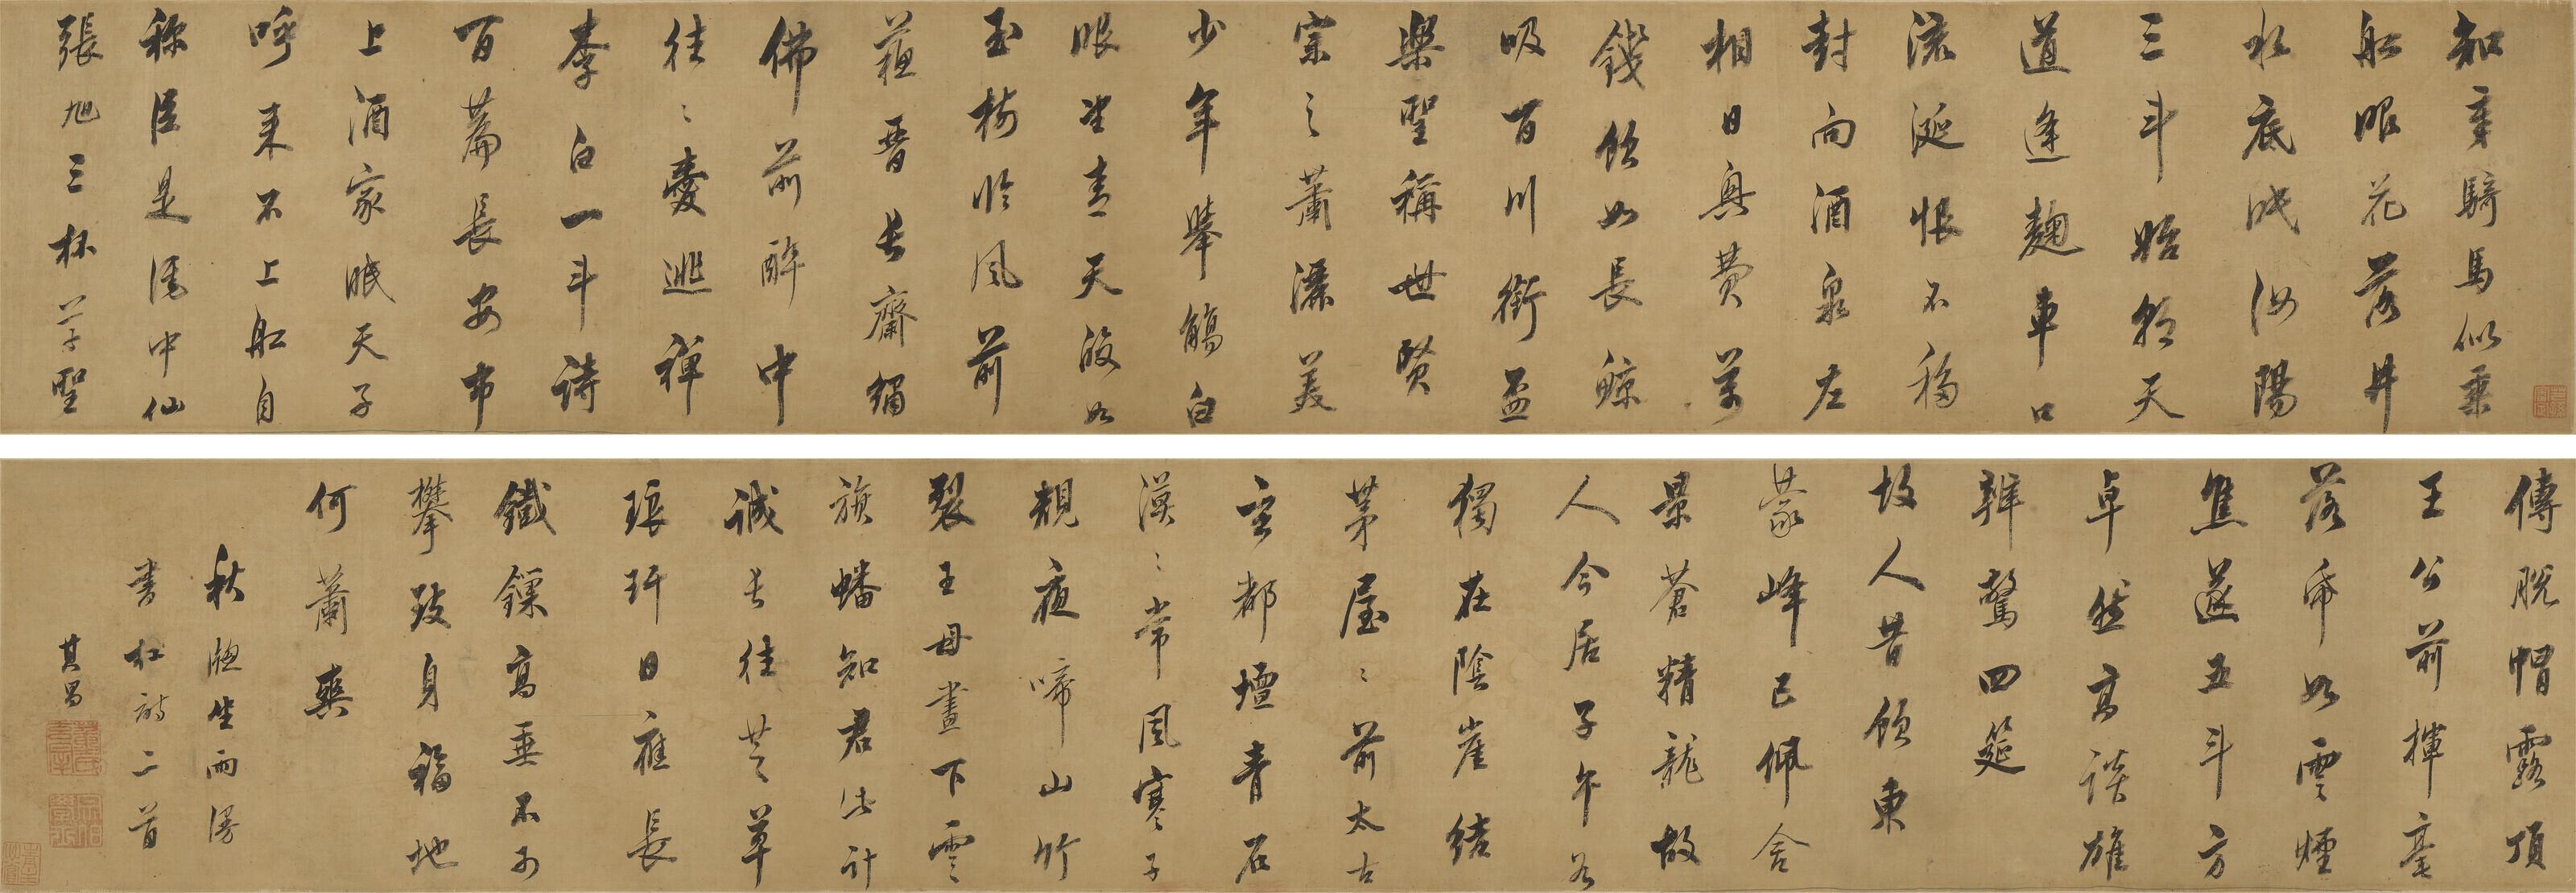 知章騎馬似乘
船眼花落井
水底眠汝陽
三斗始朝天
道逢麴車口
流涎恨不移
封向酒泉左
相日興費萬
錢飲如長鯨
吸百川銜盃
樂聖稱世賢
宗之蕭灑美
少年舉觴白
眼望青天皎如
玉樹臨風前
蘇晉長齋繡
佛前醉中
往々愛逃禪
李白一斗詩
百篇長安市
上酒家眠天子
呼来不上船自
稱臣是酒中仙
張旭三杯草聖
傳脫帽露頂
王公前揮毫
落帋如雲煙
焦遂五斗方
卓然高談雄
辯驚四筵
故人昔隱東
蒙峰已佩含
景蒼精龍故
人今居子午谷
獨在陰崖結
茅屋々前太古
玄都壇青石
漠々常風寒子
規夜啼山竹
裂王母晝下雲
旗蟠知君此計
誠長往芝草
琅玕日應長
鐵鏁高垂不可
攀致身福地
何蕭爽
秋牕坐雨漫
書杜詩二首
其昌